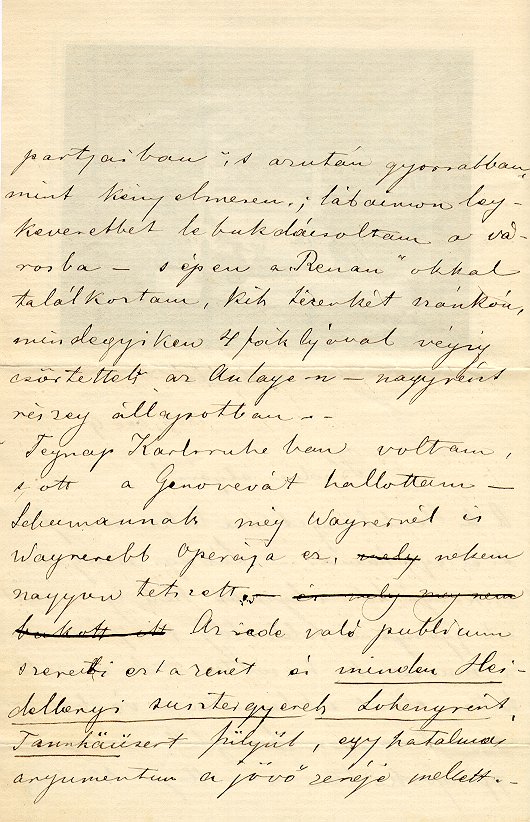 partjaiban", s azután gyorsabban,
mint kényelmesen; lábaimon leg-
keverebbet lebukdácsoltam a vá-
rosba – s épen a Renan" okkal
találkoztam, kik tizenkét szánkón,
mindegyiken 4 fáklyával végig
csörtettek az Anlage-n – nagyrészt
részeg állapotban. –
Tegnap Karlsruheban voltam,
s ott a Genovevát hallottam –
Schumannak még Wagnernél is
Wagnerebb operája ez, mely nekem
nagyon tetszett, – és mely meg nem
bukott itt Az ide való publicum
szereti ezt a zenét és minden Hei-
delbergi suszter gyerek Lohengrint,
Tannhäusert fütyül, egy hatalmas
argumentum a jövő zenéje mellett. –